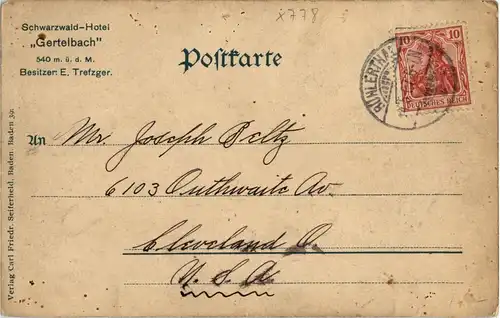 x778
Schwarzwald-Hotel
„Gertelbach”
540 m. ü. d. M.
Besitzer: E. Trefzger.
Postkarte
10 10
DEUTSCHES REICH
An Mr. Joseph Peltz
6103 Outhwaite Av.
Cleveland O.
U. S. A.
Verlag Carl Friedr. Seiferheld. Baden Baden